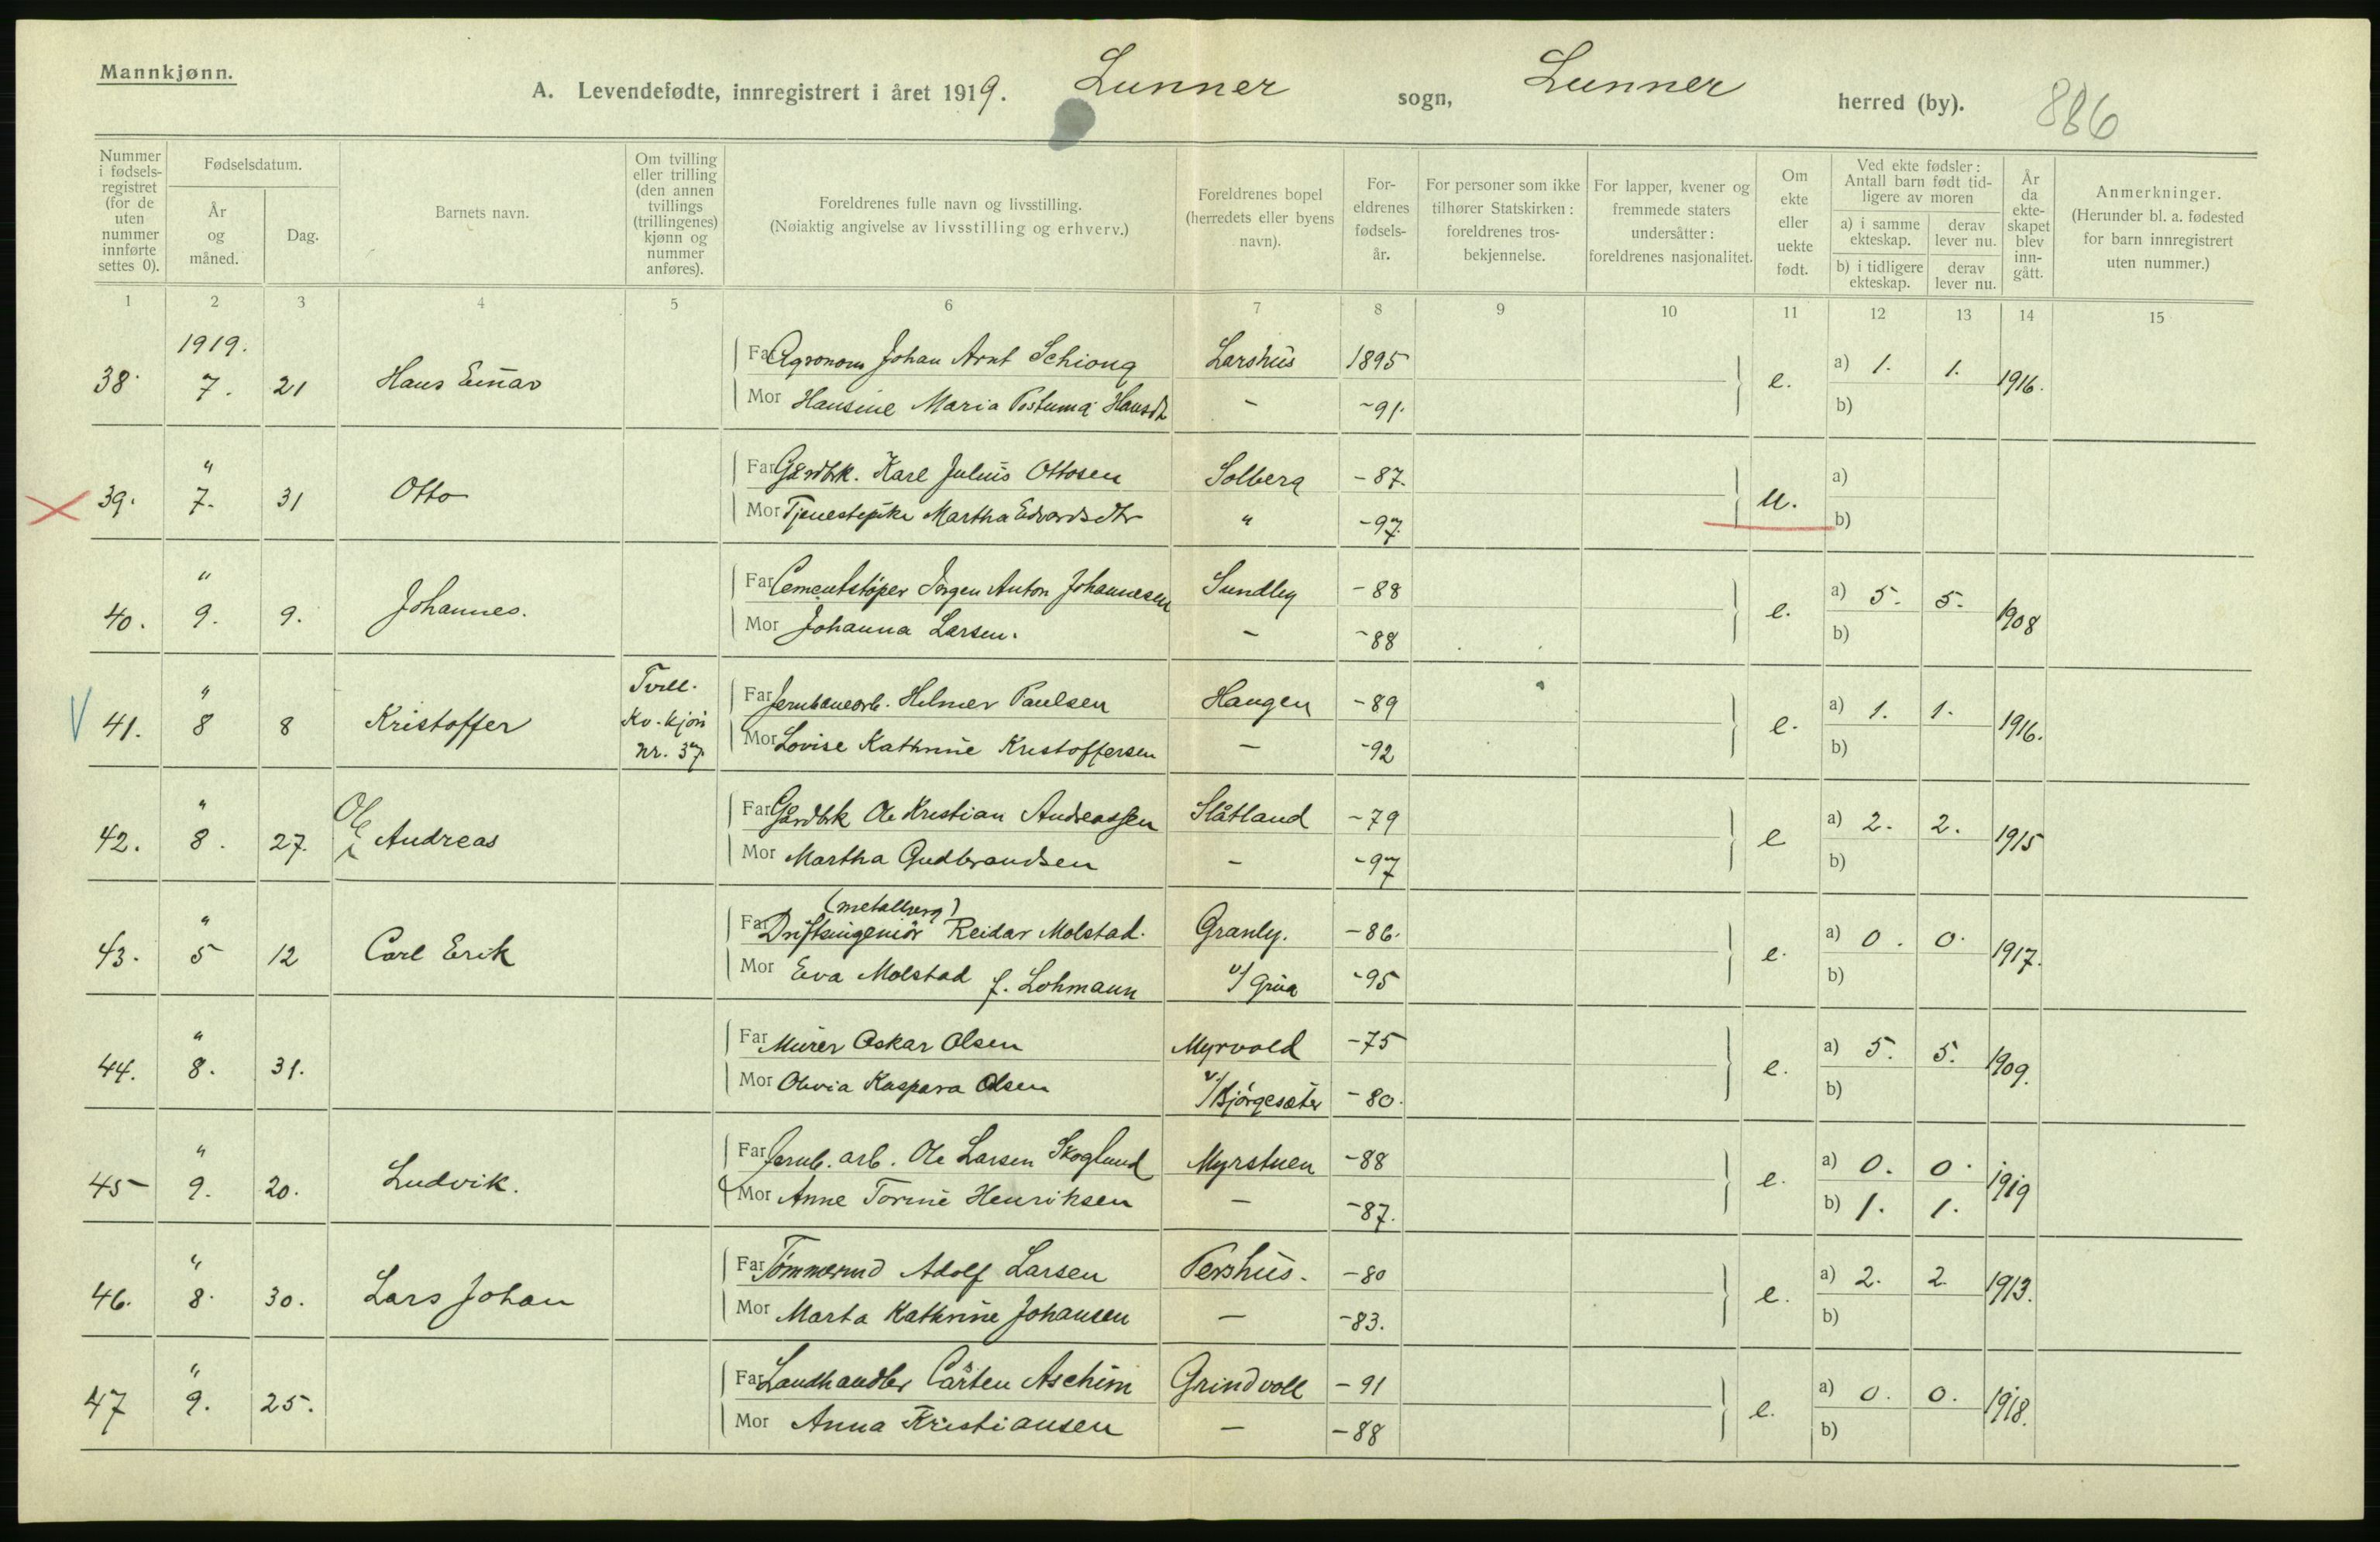 Mannkjønn.
A. Levendefødte, innregistrert i året 1919. Lunner sogn, Lunner herred (by). 886
Nummer i fødselsregistret (for de uten nummer innførte settes 0).
Fødselsdatum.
År og måned.
Dag.
Barnets navn.
Om tvilling eller trilling (den annen tvillings (trillingenes) kjønn og nummer anføres).
Foreldrenes fulle navn og livsstilling. (Nøiaktig angivelse av livsstilling og erhverv.)
Foreldrenes bopel (herredets eller byens navn).
Foreldrenes fødselsår.
For personer som ikke tilhører Statskirken: foreldrenes trosbekjennelse.
For lapper, kvener og fremmede staters undersåtter: foreldrenes nasjonalitet.
Om ekte eller uekte født.
Ved ekte fødsler: Antall barn født tidligere av moren
a) i samme ekteskap. derav lever nu.
b) i tidligere ekteskap. derav lever nu.
År da ekteskapet blev inngått.
Anmerkninger. (Herunder bl. a. fødested for barn innregistrert uten nummer.)
1 2 3 4 5 6 7 8 9 10 11 12 13 14 15
1919.
38. 7. 21 Hans Einar Far Agronom Johan Arnt Schiong Larshus 1895 e. a) 1. 1. 1916.
Mor Hansine Maria Postuma Hansdt - -91. b)
39. " 7. 31 Otto Far Gårdbk. Karl Julius Ottosen Solberg -87. u. a)
Mor Tjenestepike Martha Edvardsdtr " -97. b)
40. " 9. 9. Johannes. Far Cementstøper Jørgen Anton Johannesen Sundby -88 e. a) 5. 5. 1908
Mor Johanna Larsen. - -88 b)
41. " 8 8 Kristoffer Tvill. Kv. kjøn nr. 37. Far Jernbanearb. Hilmer Paulsen Haugen -89 e. a) 1. 1. 1916.
Mor Lovise Kathrine Kristoffersen - -92 b)
42. " 8. 27. Ole Andreas Far Gårdbk Ole Kristian Andreassen Slåtland -79 e a) 2. 2. 1915
Mor Martha Gudbrandsen - -97 b)
(metallverg)
43. " 5 12 Carl Erik Far Driftsingeniør Reidar Molstad. Granly. -86. e. a) 0. 0. 1917.
Mor Eva Molstad f. Lohmann v/ Grua -95 b)
44. " 8. 31. Far Murer Oskar Olsen Myrvold -75 e. a) 5. 5. 1909.
Mor Olivia Kaspara Olsen v/ Bjørgesæter -80. b)
45 " 9. 20. Ludvik. Far Jernb. arb. Ole Larsen Skoglund Myrstuen -88 e. a) 0. 0. 1919
Mor Anne Torine Henriksen - -87. b) 1. 1.
46. " 8. 30. Lars Johan Far Tømmermd Adolf Larsen Pershus. -80 e. a) 2. 2 1913.
Mor Marta Kathrine Johansen - -83. b)
47 " 9. 25. Far Landhandler Carsten Aschim Grindvoll -91 e. a) 0. 0. 1918.
Mor Anna Kristiansen - -88 b)